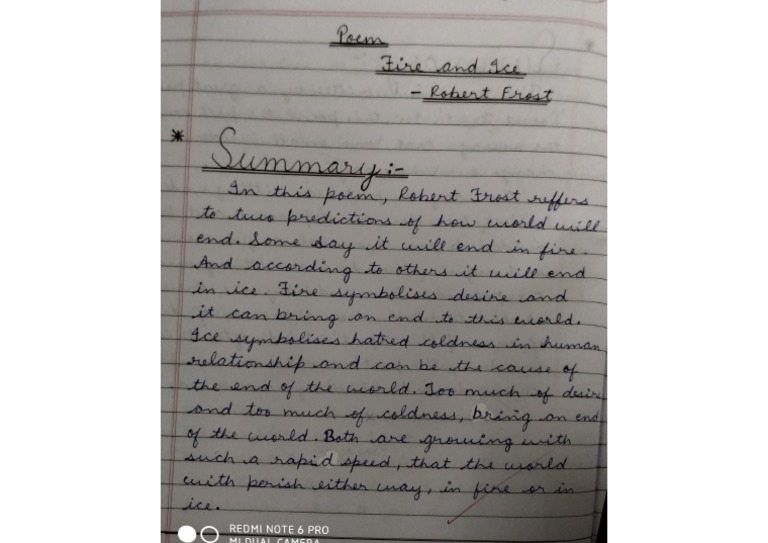 Poem
Fire and Ice
- Robert Frost
* Summary :-
In this poem, Robert Frost reffers
to two predictions of how world will
end. Some say it will end in fire.
And according to others it will end
in ice. Fire symbolises desire and
it can bring an end to this world.
Ice symbolises hatred coldness in human
relationship and can be the cause of
the end of the world. Too much of desire
and too much of coldness, bring an end
of the world. Both are growing with
such a rapid speed, that the world
with perish either way, in fire or in
ice.
REDMI NOTE 6 PRO
MI DUAL CAMERA